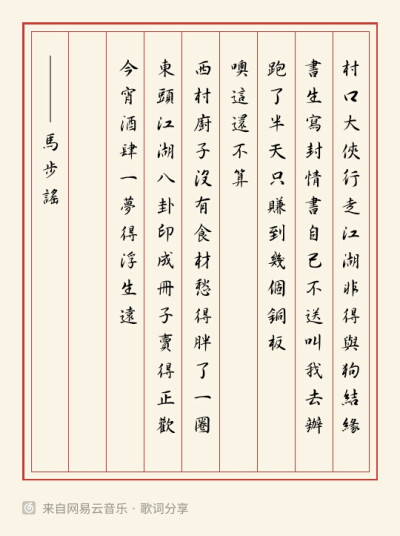 村口大俠行走江湖非得與狗結緣
書生寫封情書自己不送叫我去辦
跑了半天只賺到幾個銅板
噢這還不算
西村廚子沒有食材愁得胖了一圈
東頭江湖八卦印成冊子賣得正歡
今宵酒肆一夢得浮生遠
——馬步謠
来自网易云音乐·歌词分享